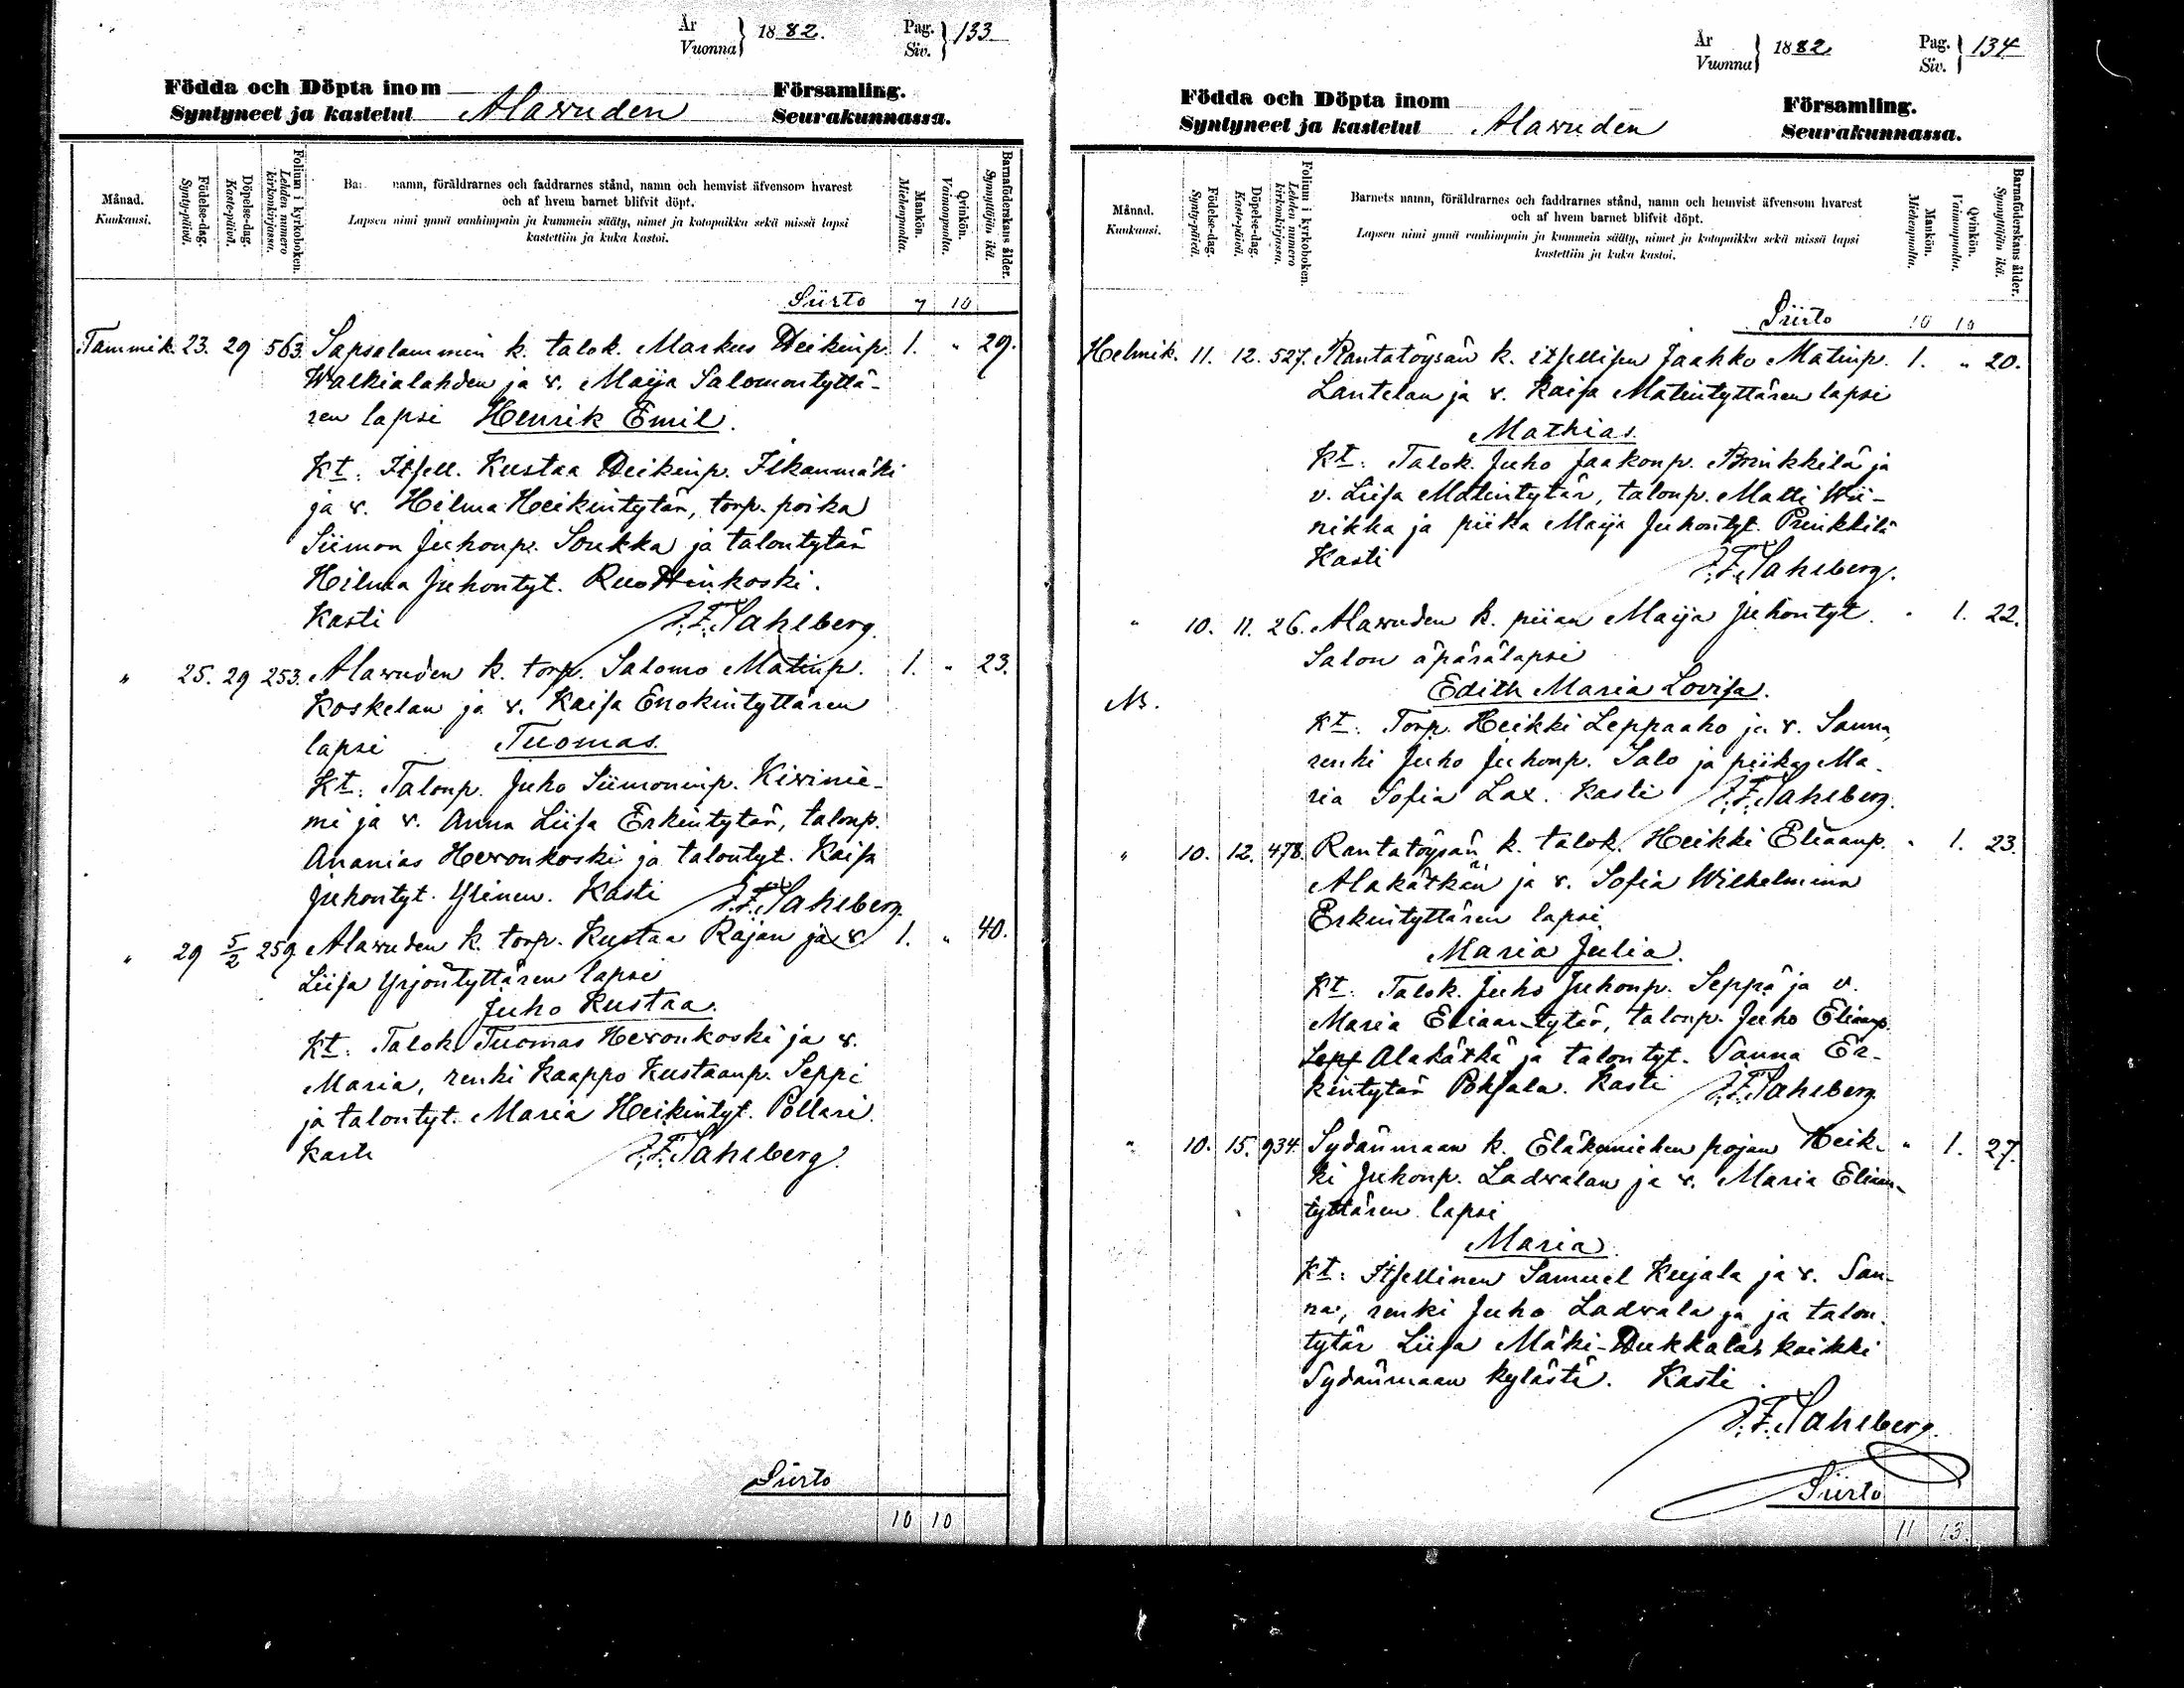 År
Vuonna } 1882.
Pag.
Siv. } 133
Födda och Döpta inom Församling.
Syntyneet ja kastetut Alawuden Seurakunnassa.
Månad.
Kuukausi.
Födelse-dag.
Synty-päivä.
Döpelse-dag.
Kaste-päivä.
Folium i kyrkoboken.
Lehden numero
kirkonkirjassa.
Ba namn, föräldrarnes och faddrarnes stånd, namn och hemvist äfvensom hvarest
och af hvem barnet blifvit döpt.
Lapsen nimi ynnä vanhimpain ja kummein sääty, nimet ja kotopaikka sekä missä lapsi
kastettiin ja kuka kastoi.
Mankön.
Miehenpuolta.
Qvinkön.
Vaimonpuolta.
Barnaföderskans ålder.
Synnyttäjän ikä.
Siirto 7 10
Tammik. 23. 29 563. Sapsalammin k. talok. Markus Heikinp. 1. " 29.
Walkialahden ja v. Maija Salomontyttä-
ren lapsi Henrik Emil.
Kt: Itsell. Kustaa Heikinp. Ilkanmäki
ja v. Hilma Heikintytär, torp. poika
Siimon Juhonp. Soukka ja talontytär
Hilma Juhontyt. Ruottinkoski.
Kasti J.F. Sahlberg.
" 25. 29 253. Alawuden k. torp. Salomo Matinp. 1. " 23.
Koskelan ja v. Kaisa Enokintyttären
lapsi Tuomas.
Kt: Talonp. Juho Siimoninp. Kiwinie-
mi ja v. Anna Liisa Erkintytär, talonp.
Ananias Hewonkoski ja talontyt. Kaisa
Juhontyt. Ylinen. Kasti J.F. Sahlberg.
" 29 5/2 259. Alawuden k. torp. Kustaa Rajan ja v. 1. " 40.
Liisa Yrjöntyttären lapsi
Juho Kustaa.
Kt: Talok. Tuomas Hewonkoski ja v.
Maria, renki Kaappo Kustaanp. Seppi
ja talontyt. Maria Heikintyt. Pollari.
Kasti J.F. Sahlberg.
Siirto
10 10
År
Vuonna } 1882
Pag.
Siv. } 134
Födda och Döpta inom Församling.
Syntyneet ja kastetut Alawuden Seurakunnassa.
Månad.
Kuukausi.
Födelse-dag.
Synty-päivä.
Döpelse-dag.
Kaste-päivä.
Folium i kyrkoboken.
Lehden numero
kirkonkirjassa.
Barnets namn, föräldrarnes och faddrarnes stånd, namn och hemvist äfvensom hvarest
och af hvem barnet blifvit döpt.
Lapsen nimi ynnä vanhimpain ja kummein sääty, nimet ja kotopaikka sekä missä lapsi
kastettiin ja kuka kastoi.
Mankön.
Miehenpuolta.
Qvinkön.
Vaimonpuolta.
Barnaföderskans ålder.
Synnyttäjän ikä.
Siirto 10 10
Helmik. 11. 12. 527. Rantatöysän k. itsellisen Jaakko Matinp. 1. " 20.
Lantelan ja v. Kaisa Matintyttären lapsi
Mathias.
Kt: Talok. Juho Jaakonp. Brinkkilä ja
v. Liisa Matintytär, talonp. Matti Wii-
nikka ja piika Maija Juhontyt. Prinkkilä
Kasti J.F. Sahlberg.
" 10. 11. 26. Alawuden k. piian Maija Juhontyt. " 1. 22.
Salon äpärälapsi
Edith Maria Lovisa.
Kt: Torp. Heikki Leppaaho ja v. Sanna,
renki Juho Juhonp. Salo ja piika Ma-
ria Sofia Lax. Kasti J.F. Sahlberg.
" 10. 12. 478. Rantatöysän k. talok. Heikki Eliaanp. " 1. 23.
Alakätkän ja v. Sofia Wilhelmina
Erkintyttären lapsi
Maria Julia.
Kt: Talok. Juho Juhonp. Seppä ja v.
Maria Eliaantytär, talonp. Juho Eliaanp.
Sepp Alakätkä ja talontyt. Sanna Er-
kintytär Pohjala. Kasti J.F. Sahlberg
" 10. 15. 934. Sydänmaan k. Eläkemiehen pojan Heik- " 1. 27.
ki Juhonp. Ladwalan ja v. Maria Eliaan-
tyttären lapsi
Maria.
Kt: Itsellinen Samuel Kujala ja v. San-
na, renki Juho Ladwala ja ja talon-
tytär Liisa Mäki-Hukkala kaikki
Sydänmaan kylästä. Kasti.
J.F. Sahlberg.
Siirto
11 13.